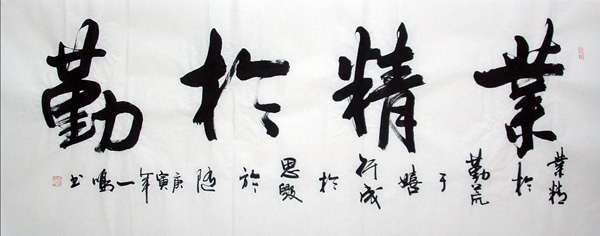 業精於勤
業精於勤荒于嬉行成於思毀於随庚寅年一鳴书